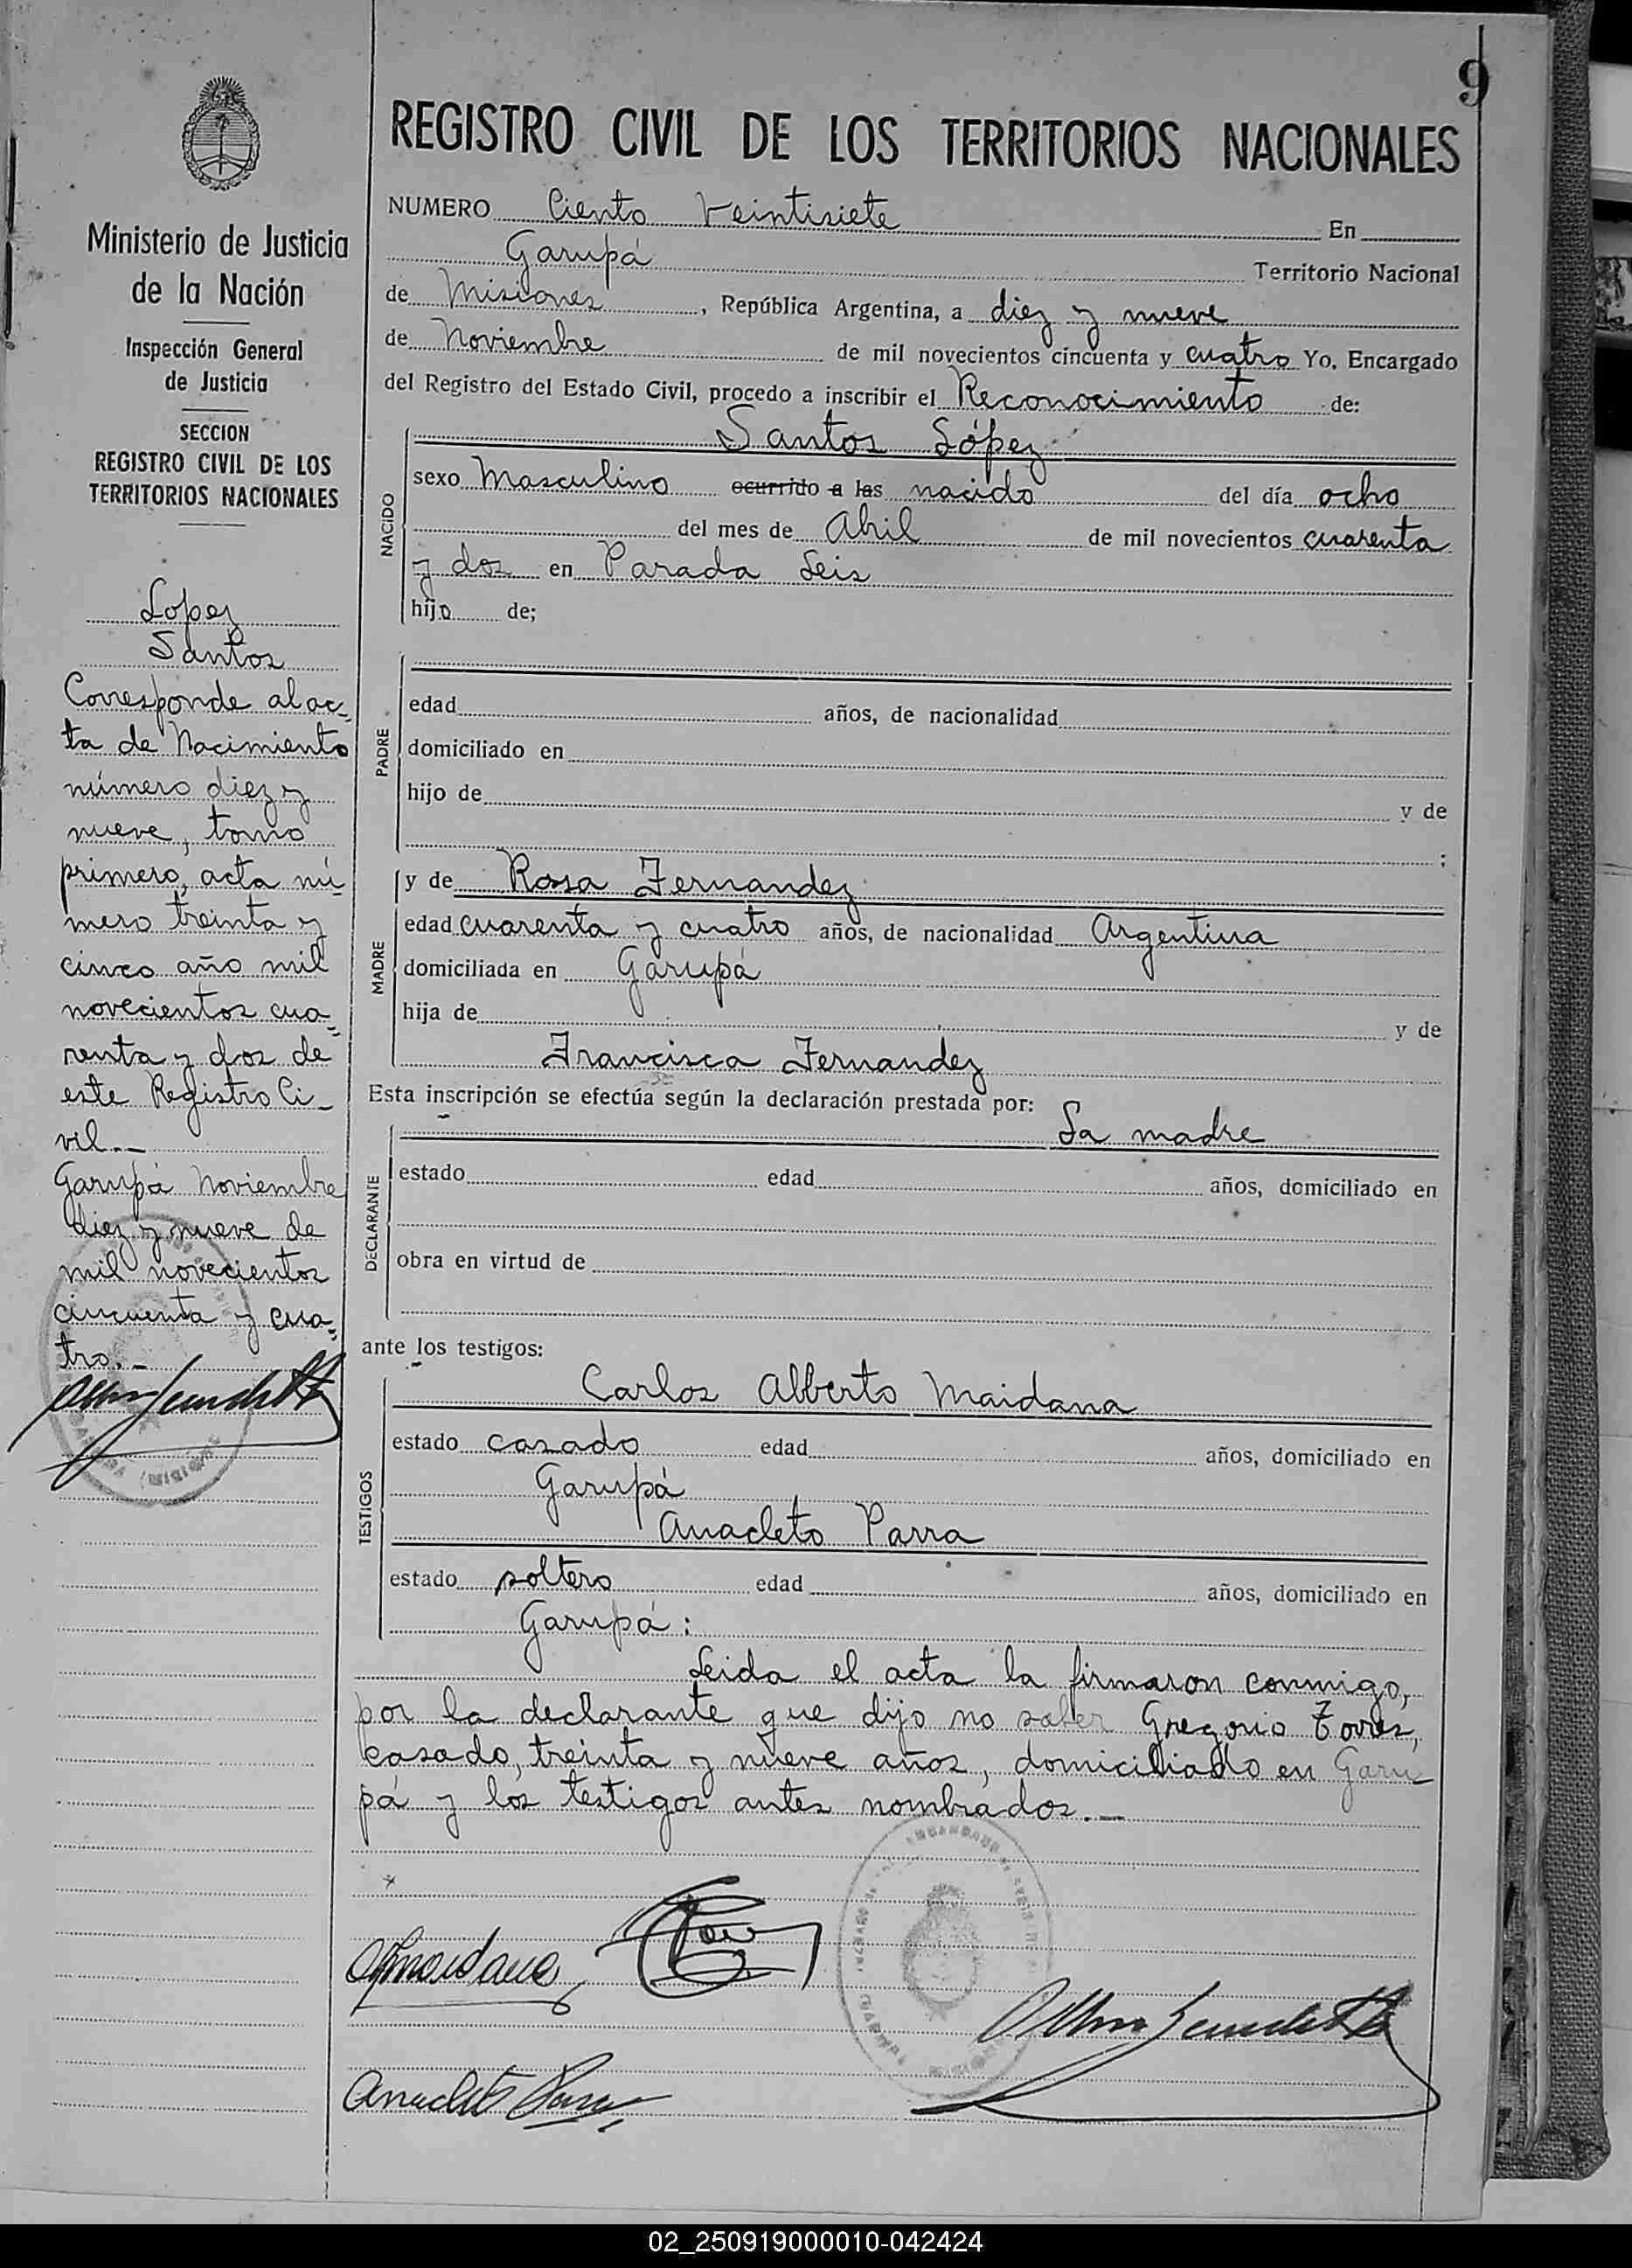 9
REGISTRO CIVIL DE LOS TERRITORIOS NACIONALES
Ministerio de Justicia
de la Nación
Inspección General
de Justicia
SECCION
REGISTRO CIVIL DE LOS
TERRITORIOS NACIONALES
Lopez
Santos
Corresponde al ac-
ta de Nacimiento
número diez y
nueve, tomo
primero, acta nú-
mero treinta y
cinco año mil
novecientos cua-
renta y dos de
este Registro Ci-
vil.-
Garupá Noviembre
diez y nueve de
mil novecientos
cincuenta y cua-
tro.-
NUMERO Ciento Veintisiete En
Garupá Territorio Nacional
de Misiones, República Argentina, a diez y nueve
de Noviembre de mil novecientos cincuenta y cuatro Yo, Encargado
del Registro del Estado Civil, procedo a inscribir el Reconocimiento de:
Santos López
NACIDO
sexo Masculino ocurrido a las nacido del día ocho
del mes de Abril de mil novecientos cuarenta
y dos en Parada Seis
hijo de;
PADRE
edad años, de nacionalidad
domiciliado en
hijo de y de
;
MADRE
y de Rosa Fernandez
edad cuarenta y cuatro años, de nacionalidad Argentina
domiciliada en Garupá
hija de y de
Francisca Fernandez
Esta inscripción se efectúa según la declaración prestada por:
La madre
DECLARANTE
estado edad años, domiciliado en
obra en virtud de
ante los testigos:
TESTIGOS
Carlos Alberto Maidana
estado casado edad años, domiciliado en
Garupá
Anacleto Parra
estado soltero edad años, domiciliado en
Garupá:
Leida el acta la firmaron conmigo,
por la declarante que dijo no saber Gregorio Torres,
casado, treinta y nueve años, domiciliado en Garu
pá y los testigos antes nombrados.-
Anacleto Parra
02_250919000010-042424